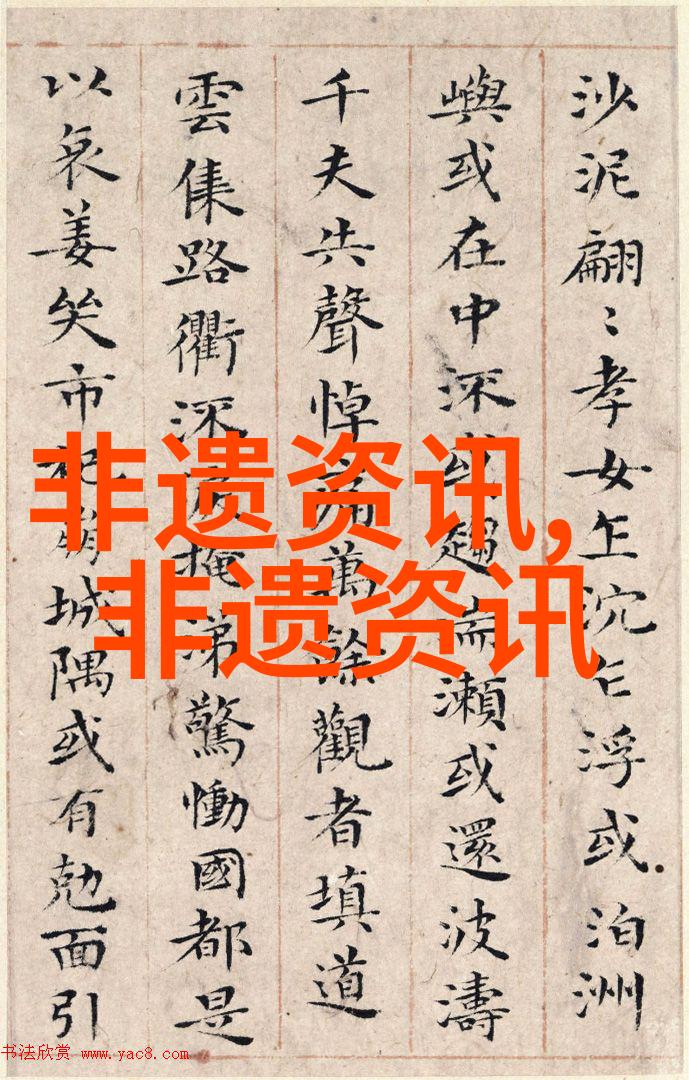 沙泥翩〻孝女乍沉乍浮或泊洲
嶼或在中深或趨湍瀨或還波濤
千夫失聲悼痛萬餘觀者填道
雲集路衢淚掩涕驚慟國都是
以哀姜哭市杞崩城隅或有尅面引
非遗资讯,
非遗资讯
书法欣赏 www.yac8.com